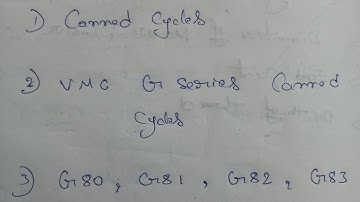 1) Canned Cycles
2) VMC G series Canned
Cycles
3) G80, G81, G82, G83